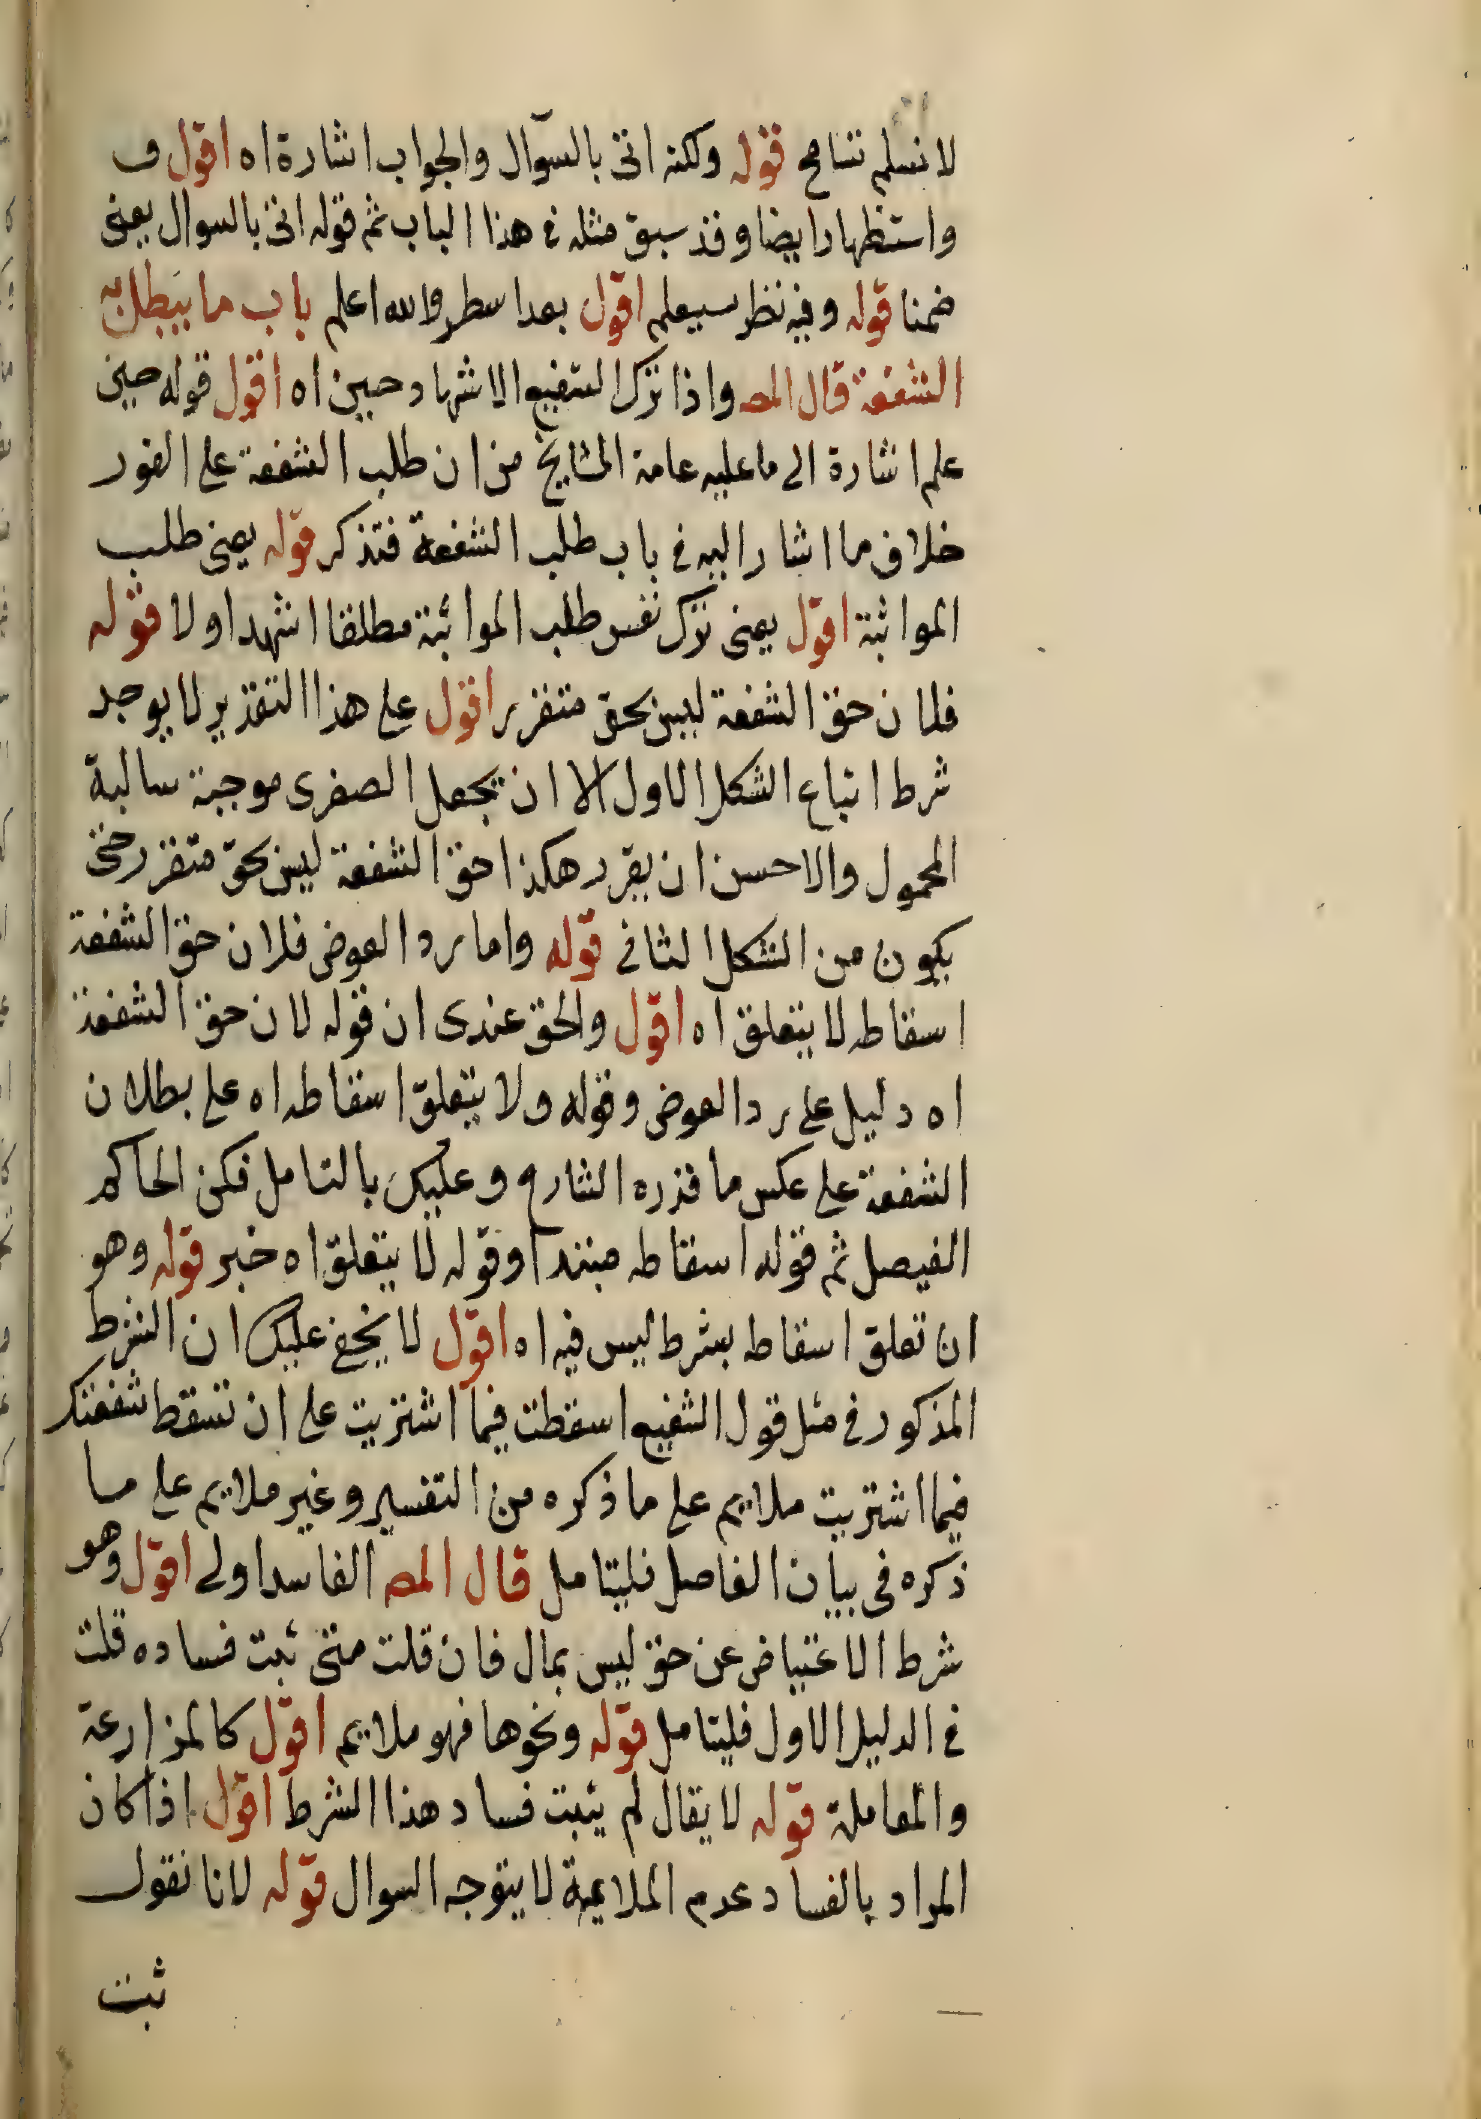 لا نسلم تسامح قوله ولكنه اتى بالسؤال والجواب اشارة اه اقول ف
واستظهارا ايضا وقد سبق مثله في هذا الباب ثم قوله اتى بالسوال يعنى
ضمنا قوله وفيه نظر سيعلم اقول بعد اسطر والله اعلم باب ما يبطل به
الشفعة قال المص واذا ترك الشفيع الاشهاد حين اه اقول قوله حين
علم اشارة الى ما عليه عامة المشايخ من ان طلب الشفعة على الفور
خلاف ما اشار اليه في باب طلب الشفعة فتذكر قوله يعنى طلب
المواثبة اقول يعنى ترك نفس طلب المواثبة مطلقا اشهد او لا قوله
فلان حق الشفعة ليس بحق متقرر اقول على هذا التقدير لا يوجد
شرط انتاج الشكل الاول الا ان يجعل الصغرى موجبة سالبة
المحمول والاحسن ان يقرر هكذا حق الشفعة ليس بحق متقرر حتى
يكون من الشكل الثانى قوله واما رد العوض فلان حق الشفعة
اسقاطه لا يتعلق اه اقول والحق عندى ان قوله لان حق الشفعة
اه دليل على رد العوض وقوله ولا يتعلق اسقاطه اه على بطلان
الشفعة على عكس ما قرره الشارح وعليك بالتامل فكن الحاكم
الفيصل ثم قوله اسقاطه مبتدا وقوله لا يتعلق اه خبر قوله وهو
ان تعلق اسقاطه بشرط ليس فيه اه اقول لا يخفى عليك ان الشرط
المذكور في مثل قول الشفيع اسقطت فيما اشتريت على ان تسقط شفعتك
فيما اشتريت ملايم على ما ذكره من التفسير وغير ملايم على ما
ذكره في بيان الفاصل فليتامل قال المص الفاسد اولى اقول وهو
شرط الاعتياض عن حق ليس بمال فان قلت متى ثبت فساده قلت
في الدليل الاول فليتامل قوله ونحوها فهو ملايم اقول كالمزارعة
والمعاملة قوله لا يقال لم يثبت فساد هذا الشرط اقول اذا كان
المراد بالفساد عدم الملايمة لا يتوجه السوال قوله لانا نقول
ثبت